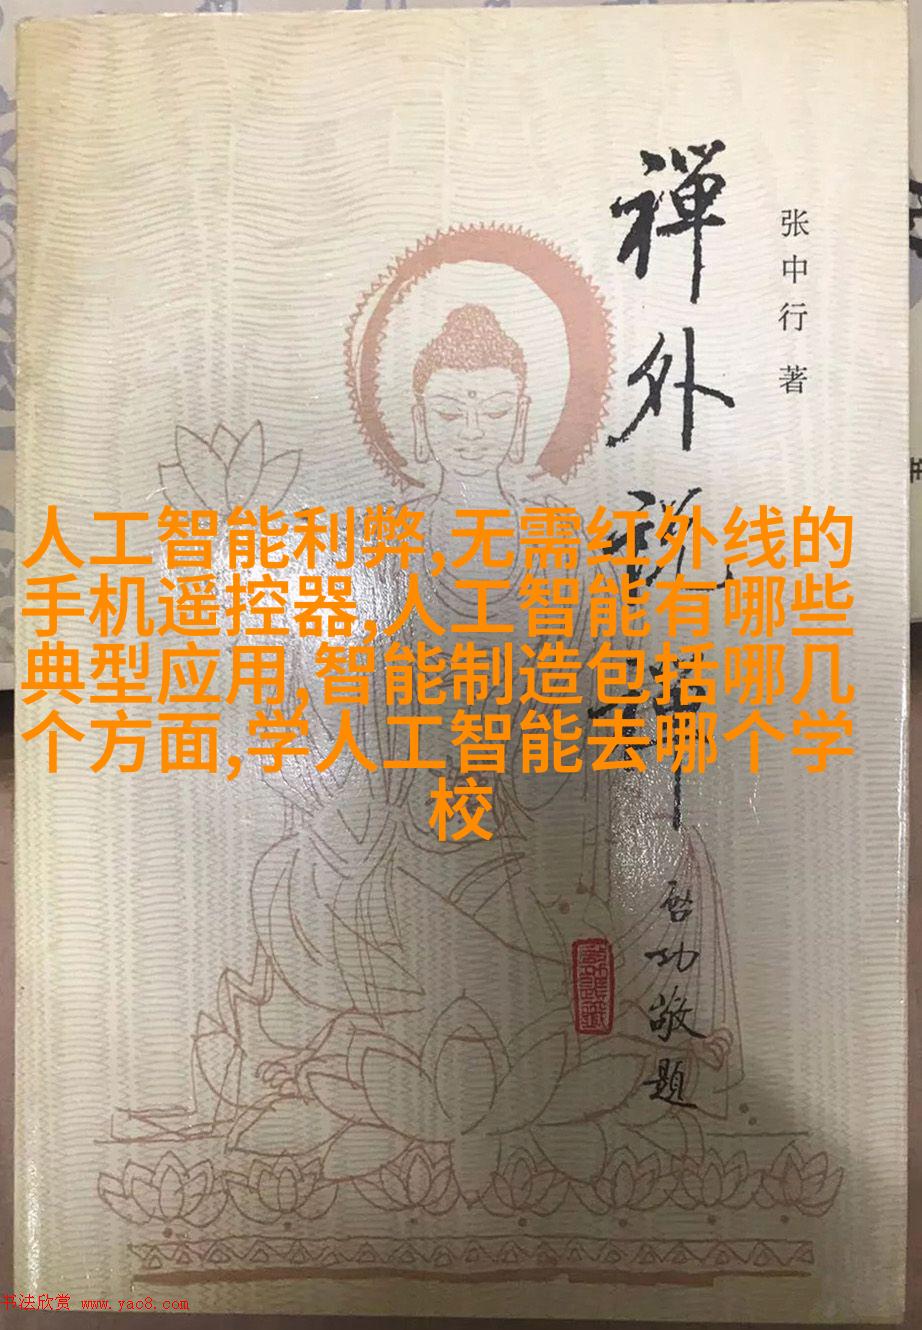 禅外说禅
张中行 著
人工智能利弊,无需红外线的
手机遥控器,人工智能有哪些
典型应用,智能制造包括哪几
个方面,学人工智能去哪个学
校
启功敬题
书法欣赏 www.yac8.com